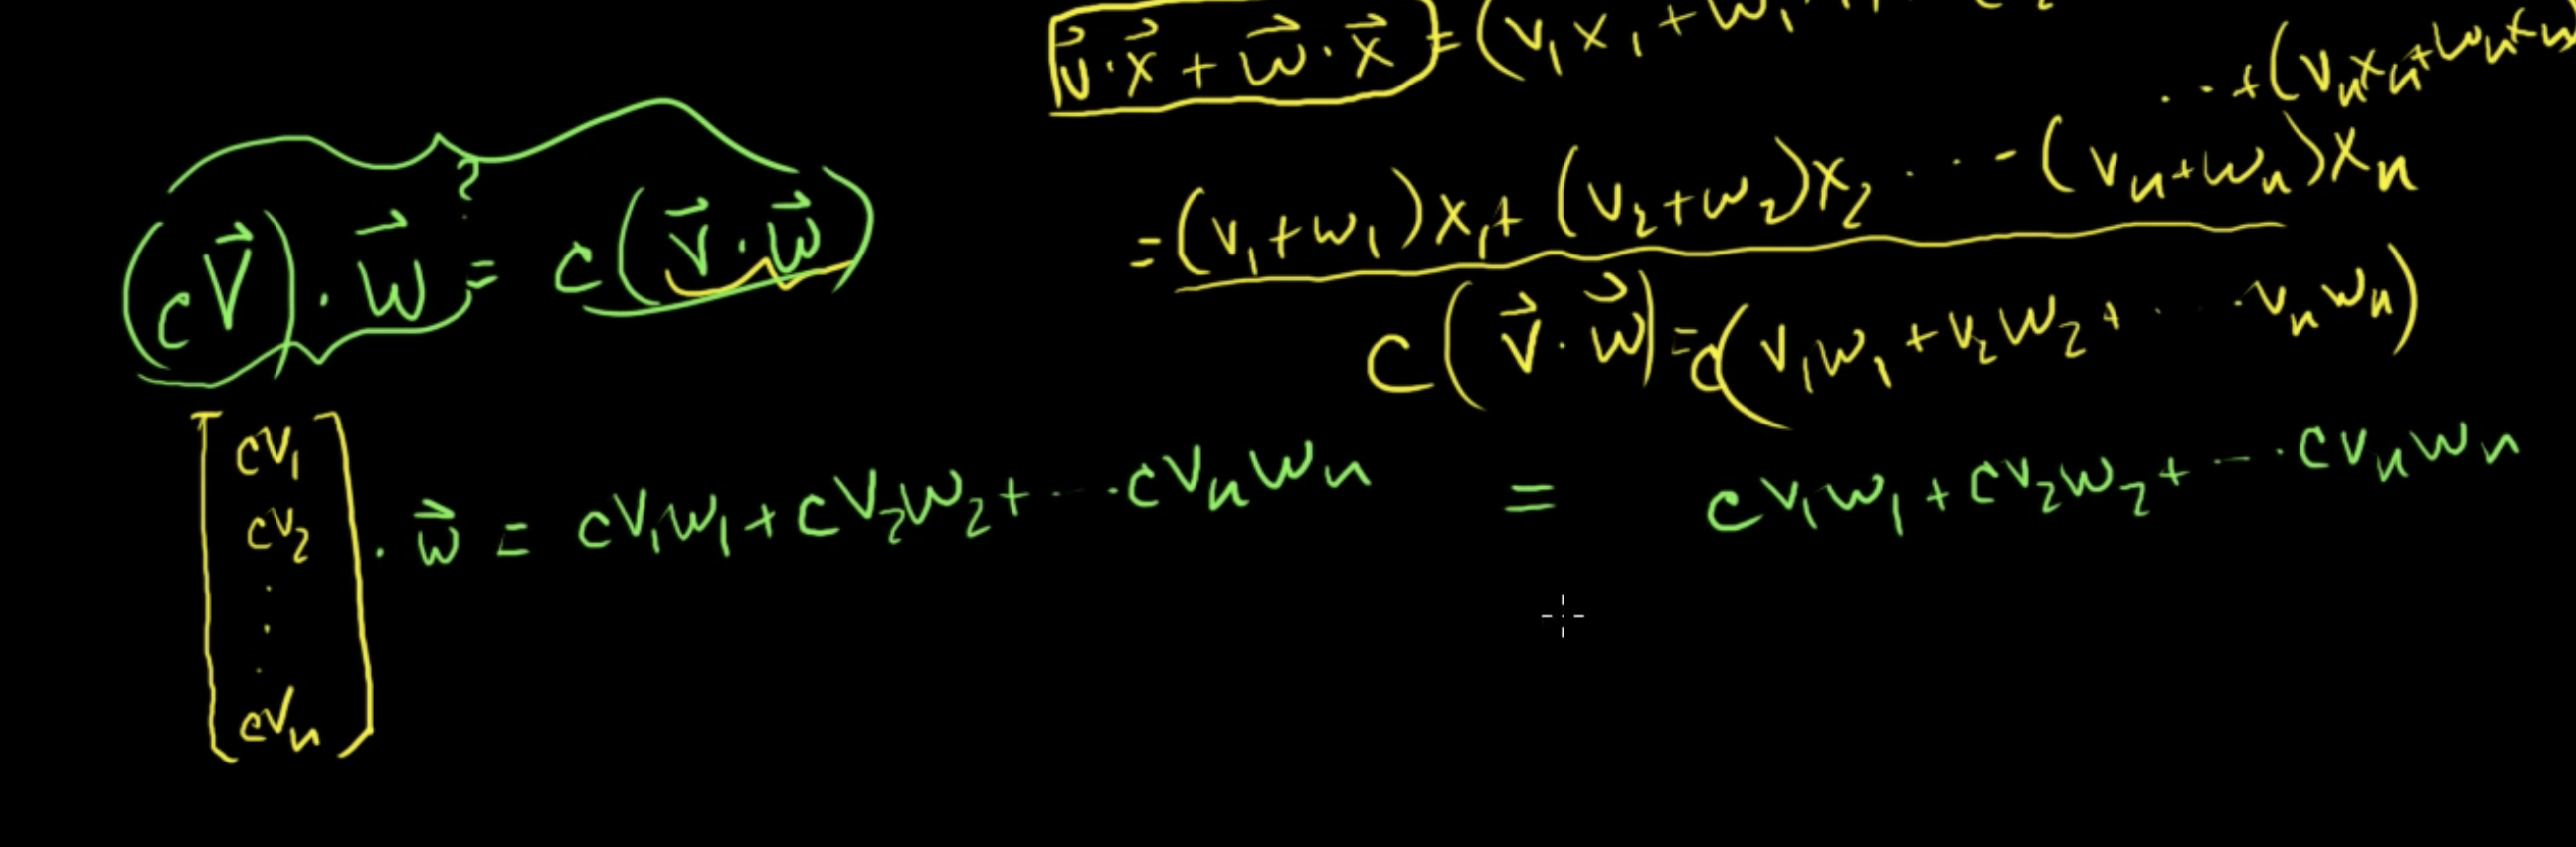 v⃗·x⃗ + w⃗·x⃗ = (v₁x₁ + w₁
··+(vₙxₙ+wₙxₙ)
= (v₁+w₁)x₁+ (v₂+w₂)x₂ ···-(vₙ+wₙ)xₙ
?
(cv⃗)·w⃗ = c(v⃗·w⃗)
c(v⃗·w⃗)=c(v₁w₁+v₂w₂+···vₙwₙ)
[cv₁ cv₂ ⋮ cvₙ]·w⃗ = cv₁w₁+cv₂w₂+···cvₙwₙ = cv₁w₁+cv₂w₂+-··cvₙwₙ